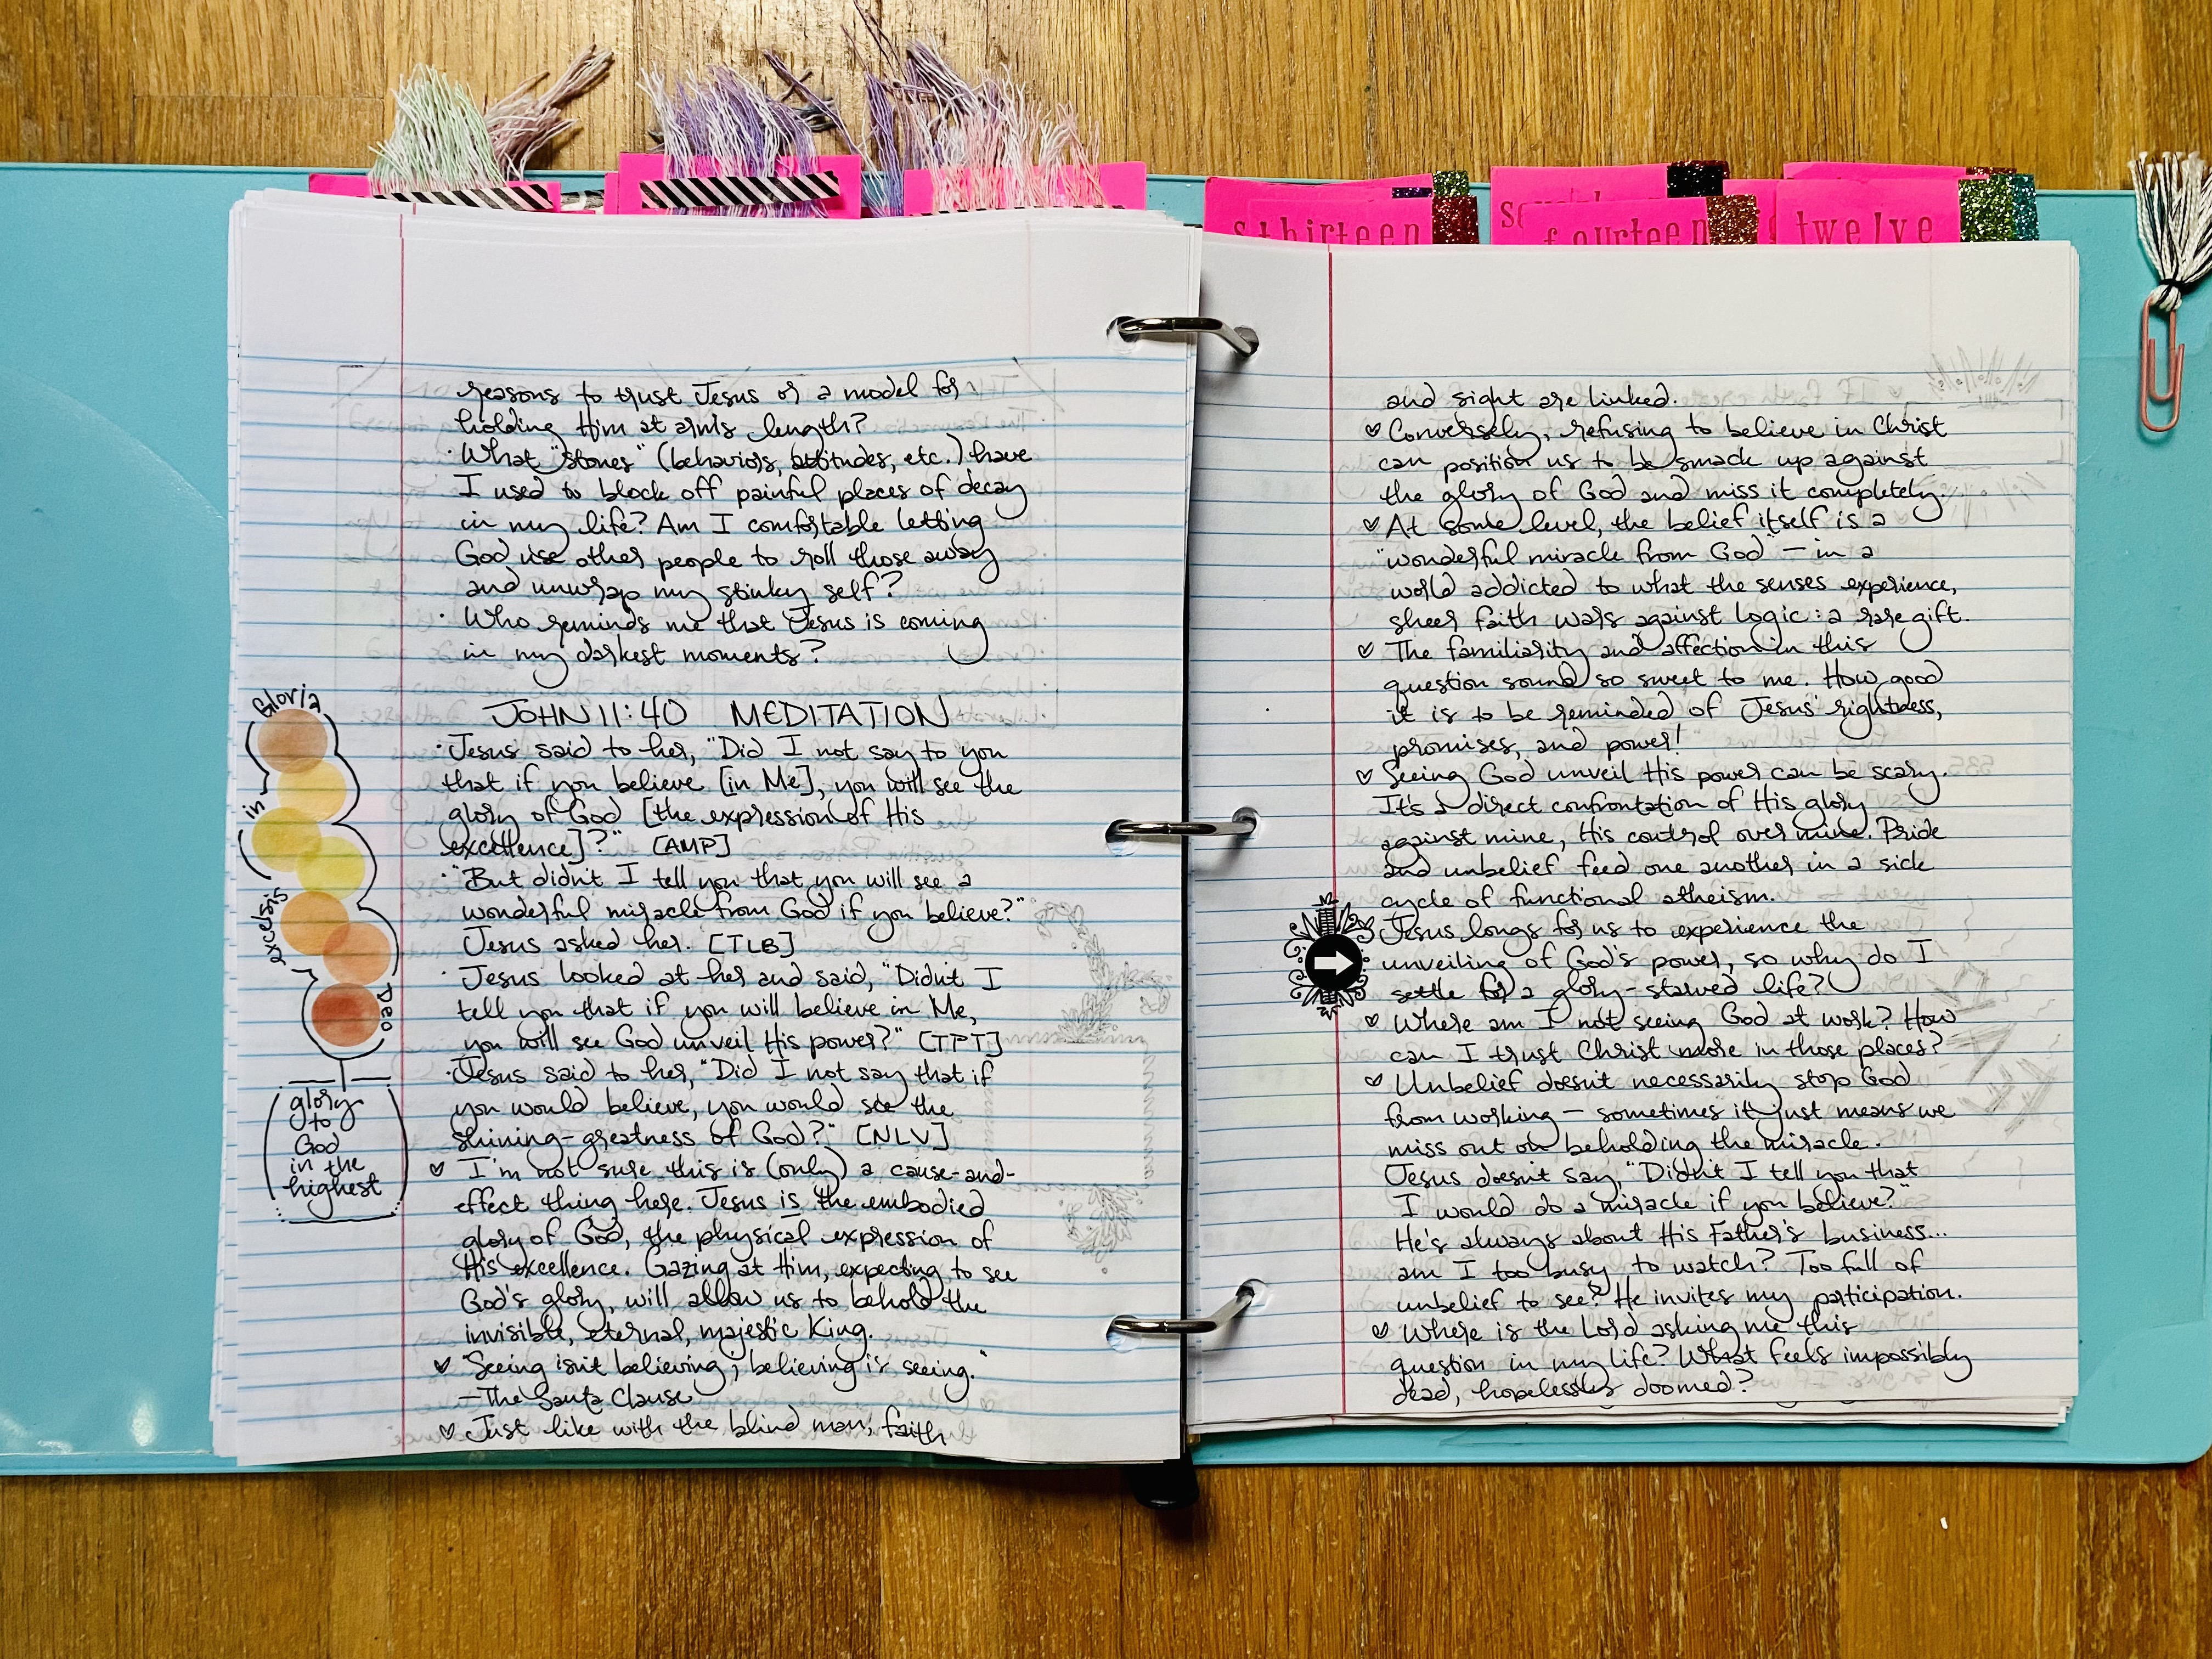 thirteen
fourteen
twelve
reasons to trust Jesus or a model for
holding Him at arm's length?
· What "stones" (behaviors, attitudes, etc.) have
I used to block off painful places of decay
in my life? Am I comfortable letting
God use other people to roll those away
and unwrap my stinky self?
· Who reminds me that Jesus is coming
in my darkest moments?
JOHN 11:40 MEDITATION
· Jesus said to her, "Did I not say to you
that if you believe [in Me], you will see the
glory of God [the expression of His
excellence]?" [AMP]
· "But didn't I tell you that you will see a
wonderful miracle from God if you believe?"
Jesus asked her. [TLB]
· Jesus looked at her and said, "Didn't I
tell you that if you will believe in Me,
you will see God unveil His power?" [TPT]
· Jesus said to her, "Did I not say that if
you would believe, you would see the
shining-greatness of God?" [NLV]
♡ I'm not sure this is (only) a cause-and-
effect thing here. Jesus is the embodied
glory of God, the physical expression of
His excellence. Gazing at Him, expecting to see
God's glory, will allow us to behold the
invisible, eternal, majestic King.
♡ "Seeing isn't believing; believing is seeing."
—The Santa Clause
♡ Just like with the blind man, faith
Gloria
in
excelsis
Deo
glory
to
God
in the
highest
and sight are linked.
♡ Conversely, refusing to believe in Christ
can position us to be smack up against
the glory of God and miss it completely.
♡ At some level, the belief itself is a
"wonderful miracle from God" — in a
world addicted to what the senses experience,
sheer faith wars against logic: a rare gift.
♡ The familiarity and affection in this
question sound so sweet to me. How good
it is to be reminded of Jesus' rightness,
promises, and power!
♡ Seeing God unveil His power can be scary.
It's a direct confrontation of His glory
against mine, His control over mine. Pride
and unbelief feed one another in a sick
cycle of functional atheism.
♡ Jesus longs for us to experience the
unveiling of God's power, so why do I
settle for a glory-starved life?
♡ Where am I not seeing God at work? How
can I trust Christ more in those places?
♡ Unbelief doesn't necessarily stop God
from working — sometimes it just means we
miss out on beholding the miracle.
Jesus doesn't say, "Didn't I tell you that
I would do a miracle if you believe?"
He's always about His Father's business...
am I too busy to watch? Too full of
unbelief to see? He invites my participation.
♡ Where is the Lord asking me this
question in my life? What feels impossibly
dead, hopelessly doomed?